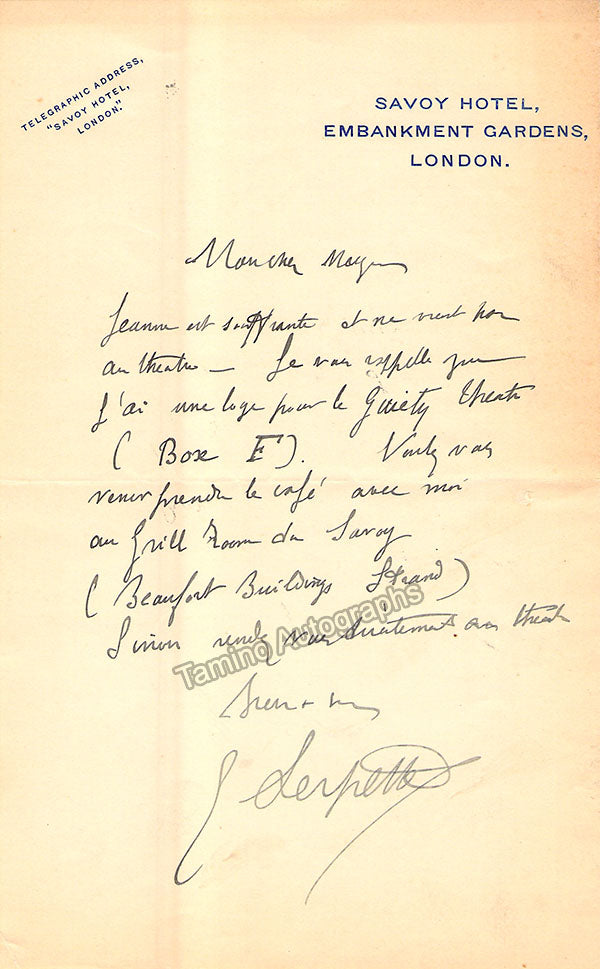 TELEGRAPHIC ADDRESS,
"SAVOY HOTEL,
LONDON."
SAVOY HOTEL,
EMBANKMENT GARDENS,
LONDON.
Mon cher
Jeanne est souffrante et ne vient pas
au theatre — Je vous rappelle que
j'ai une loge pour le Gaiety Theatre
( Box F ). Voulez vous
venir prendre le café avec moi
au Grill Room du Savoy
( Beaufort Buildings Strand )
Sinon rendez vous directement au theatre
Bien a vous
G Serpette
Tamino Autographs